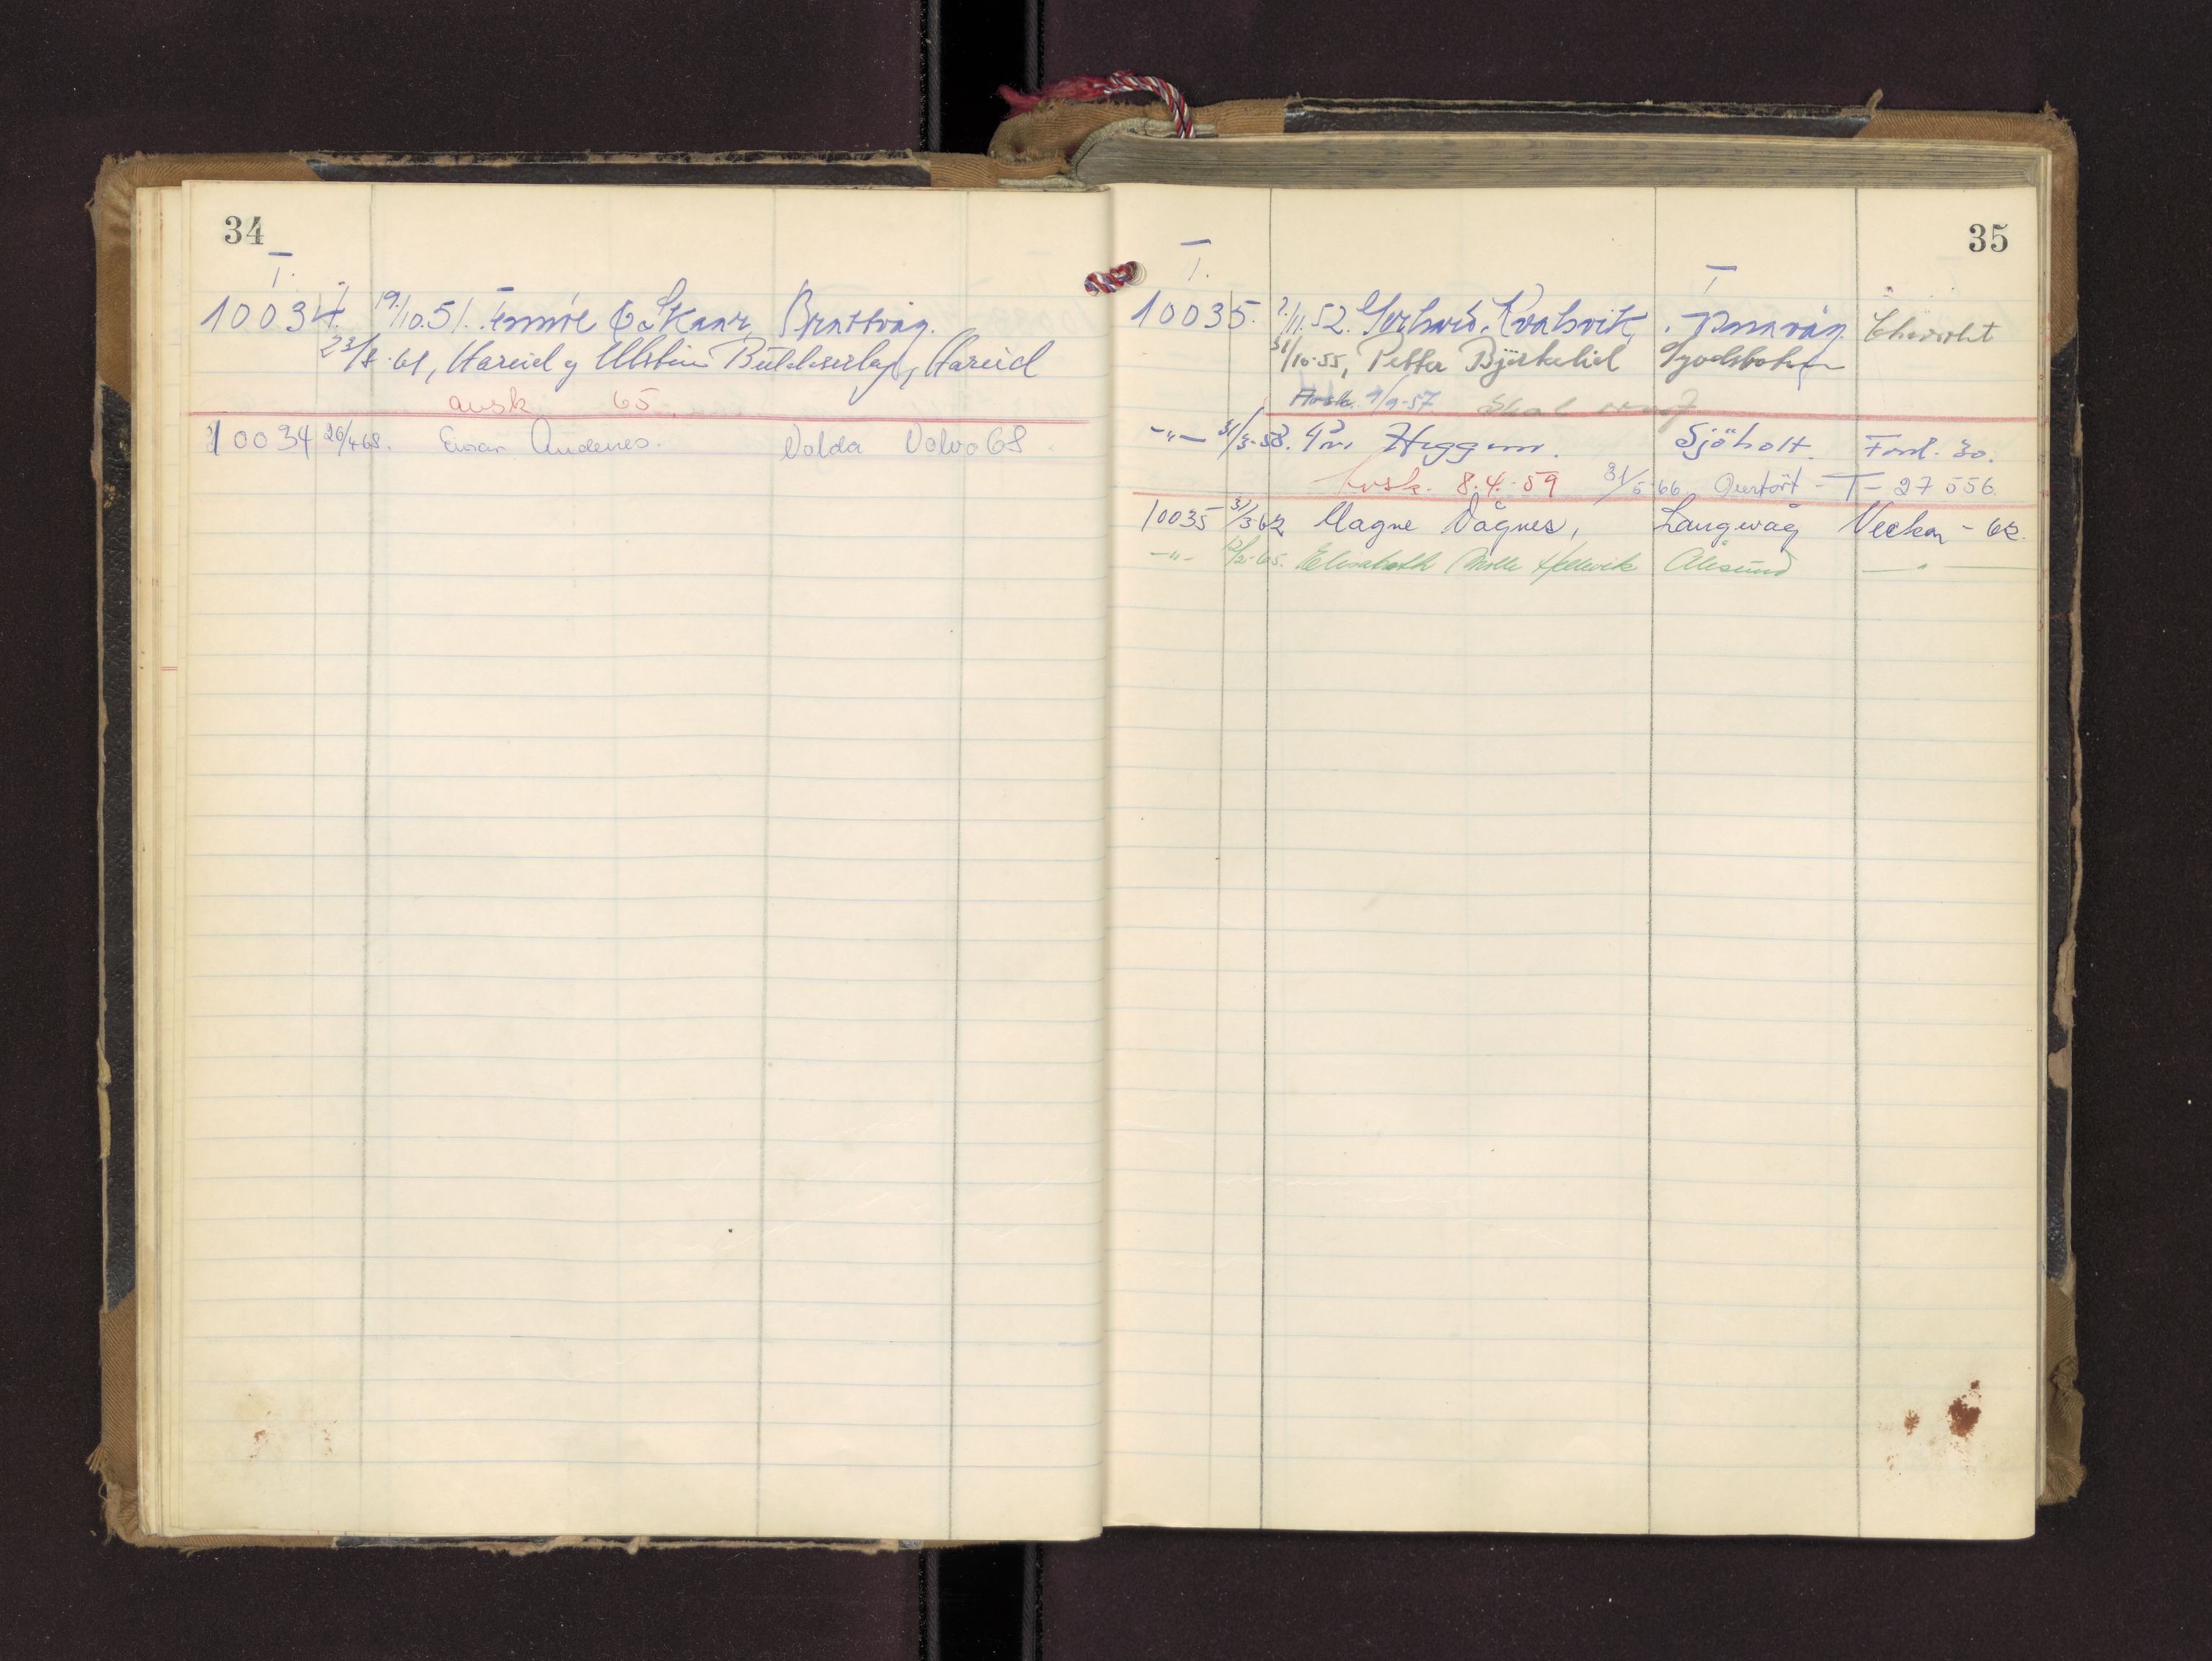 34
T.
10034. 19/10.51. Brattvåg.
23/8-61, Hareid og Ulstein Bilelskerlag, Hareid
avsk 65
10034 26/4 68. Einar Andenes. Volda Volvo 68
35
T. T
10035. 7/11.52. Gerhard Kvalsvik, Chevrolet
31/10-55, Petter Bjørkelid Syvdsbotn
Avsk. 9/9-57 Skal
-"- 31/3-58. Heggem. Sjöholt. Ford. 30.
Avsk. 8.4.-59 31/5-66 Overført - T- 27556
10035 31/3-62 Magne Vågnes, Langevåg Veckon - 62.
-"- 12/2-65. Elisabeth Molle Hellevik Ålesund -"-